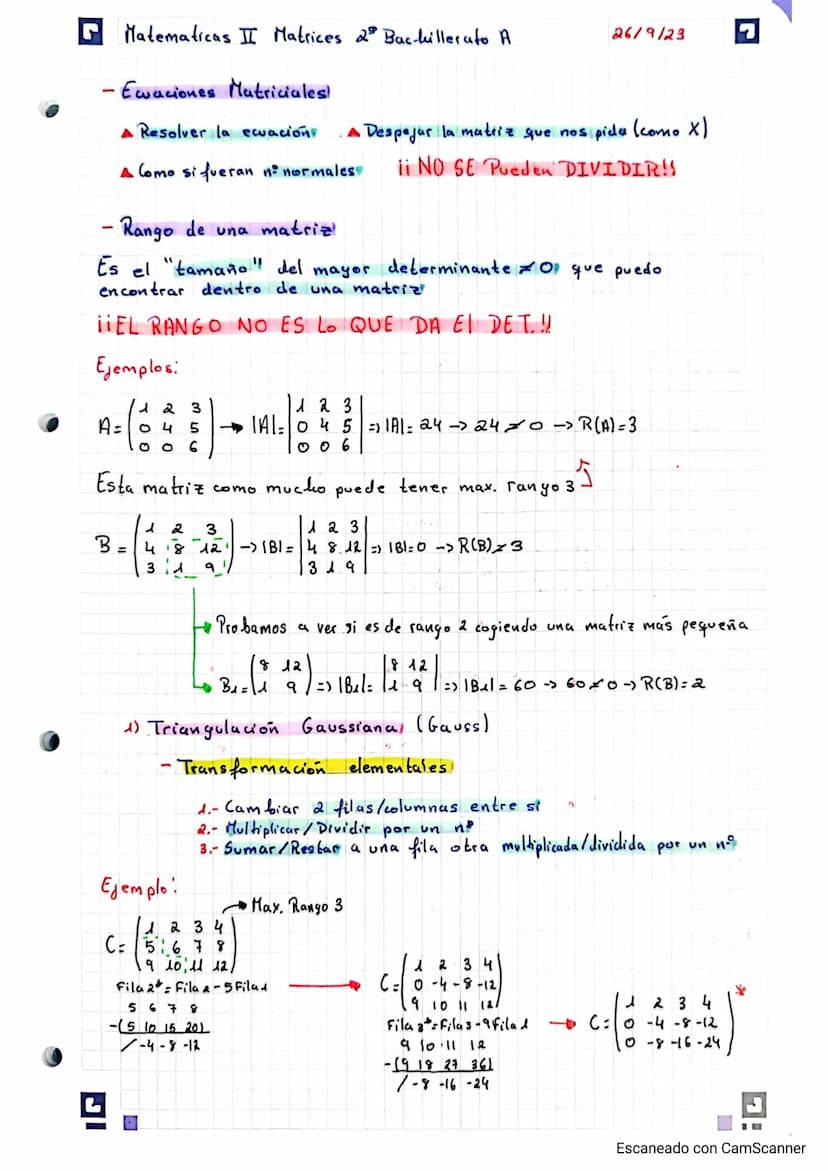 Matematicas II Matrices 2º Bachillerato A 26/9/23
- Ecuaciones Matriciales
▲ Resolver la ecuación ▲ Despejar la matriz que nos pida (como X)
▲ Como si fueran nº normales ¡¡ NO SE Pueden DIVIDIR!!
- Rango de una matriz
Es el "tamaño" del mayor determinante ≠ 0, que puedo
encontrar dentro de una matriz
¡¡EL RANGO NO ES Lo QUE DA El DET.!!
Ejemplos:
A= (1 2 3 / 0 4 5 / 0 0 6) → |A|= |1 2 3 / 0 4 5 / 0 0 6| => |A|= 24 -> 24 ≠ 0 -> R(A)=3
Esta matriz como mucho puede tener max. rango 3
B = (1 2 3 / 4 8 12 / 3 1 9) -> |B| = |1 2 3 / 4 8 12 / 3 1 9| => |B|=0 -> R(B) ≠ 3
Probamos a ver si es de rango 2 cogiendo una matriz más pequeña
B1= (8 12 / 1 9) => |B1|= |8 12 / 1 9| => |B1| = 60 -> 60 ≠ 0 -> R(B)=2
1) Triangulación Gaussiana, (Gauss)
- Transformación elementales
1.- Cambiar 2 filas/columnas entre sí
2.- Multiplicar/Dividir por un nº
3.- Sumar/Restar a una fila otra multiplicada/dividida por un nº
Ejemplo:
Max. Rango 3
C= (1 2 3 4 / 5 6 7 8 / 9 10 11 12)
Fila 2*= Fila 2 - 5 Fila 1
5 6 7 8
-(5 10 15 20)
/ -4 -8 -12
C= (1 2 3 4 / 0 -4 -8 -12 / 9 10 11 12)
Fila 3*= Fila 3 - 9 Fila 1
9 10 11 12
-(9 18 27 36)
/ -8 -16 -24
C= (1 2 3 4 / 0 -4 -8 -12 / 0 -8 -16 -24) *
Escaneado con CamScanner